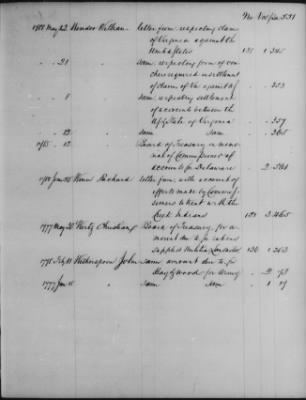 No. Vol. Pa. 531
1788 May 22 Winder William letter from, respecting claim
of Virginia against the
United States 138 1 345
" 21 same, respecting form of vou-
chers required in settlement
of claims of the against " 353
" 8 same, respecting settlement
of accounts between the
State of Virginia " 357
" 12 same same " 365
" 12 Board of Treasury a memo-
rial of Commissioner of
accounts for Delaware 2 561
Winn Richard letter from, with account of
efforts made by Commis-
sioners to treat with the
Creek Indians 3 465
1777 May 20 Wirtz Christian Board of Treasury, for a-
mount due to, for
supplies 136 1 263
1778 Feby Witherspoon John same amount due to, for
for Army 2 73
1777 Jan same same 1 19